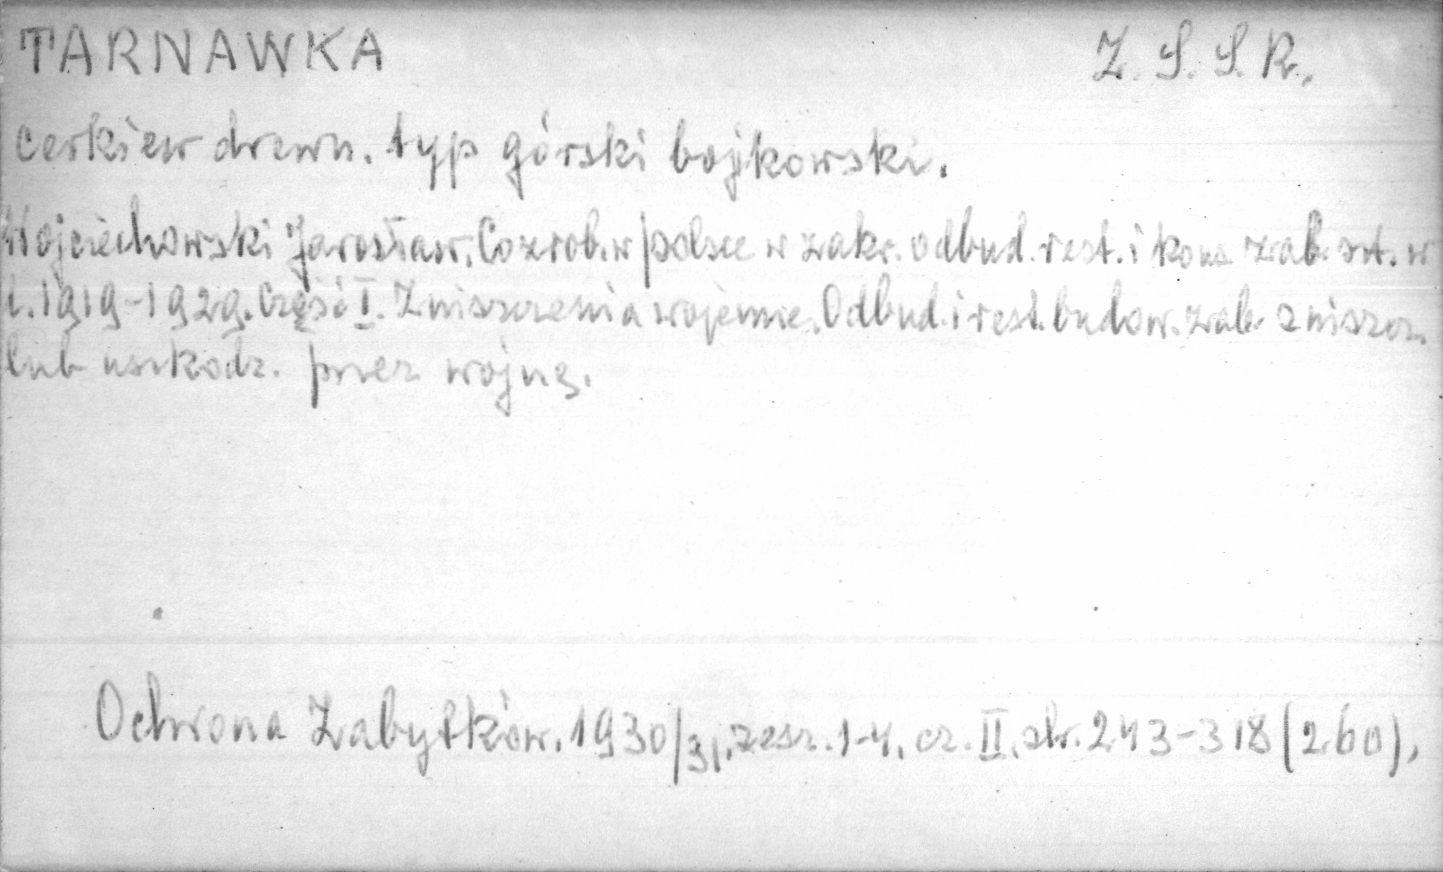 TARNAWKA Z. S. S. R.
cerkiew drewn. typ górski bojkowski.
Wojciechowski Jarosław. Co zrob. w polsce w zakr. odbud. rest. i kons. zab. szt. w
l. 1919-1929. Część I. Zniszczenia wojenne. Odbud. i rest. budow. zab. zniszcz.
lub uszkodz. przez wojnę.
Ochrona Zabytków. 1930/31. zesz. 1-4. cz. II. str. 243-318 (260),